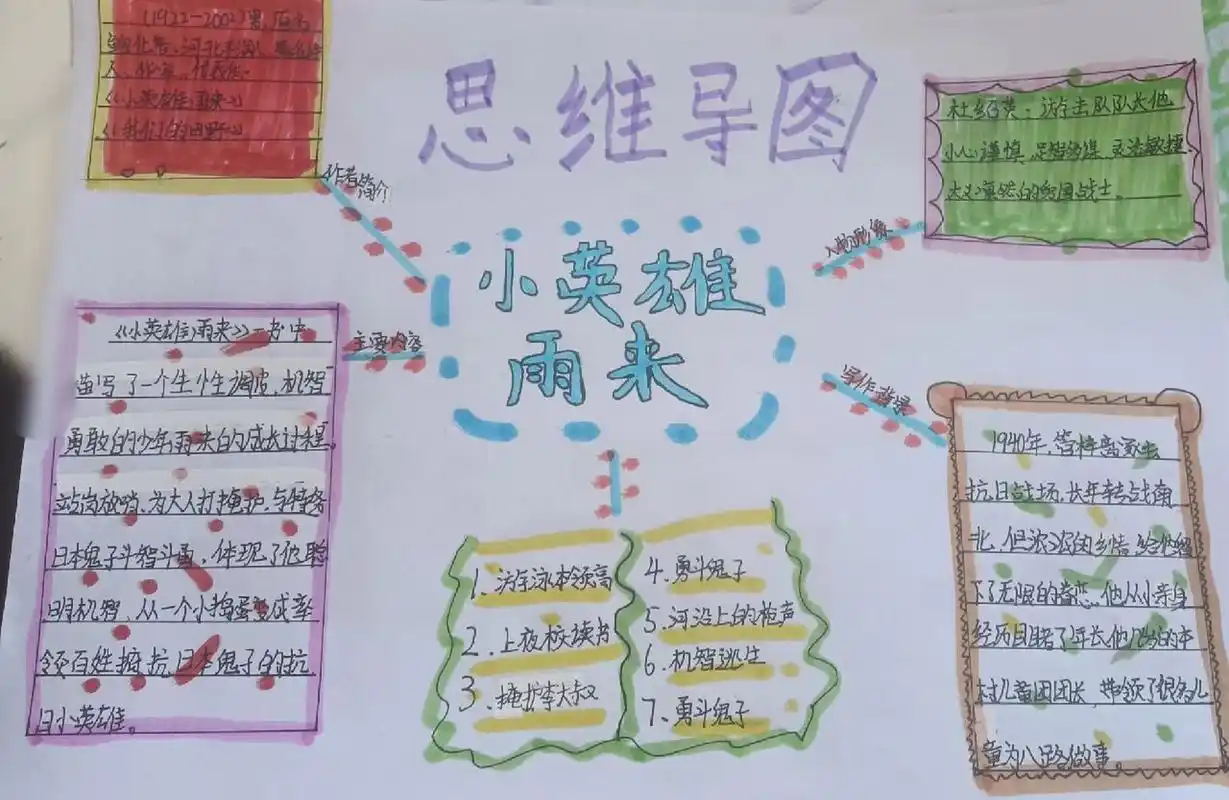 思维导图
小英雄
雨来
作者简介
(1922-2002)曾,原名
河北
人,作家,代表作
《小英雄雨来》
《我们的田野》
主要内容
《小英雄雨来》一书中
描写了一个生性调皮,机智
勇敢的少年雨来的成长过程。
站岗放哨,为大人打掩护,与特务
日本鬼子斗智斗勇,体现了他聪
明机智,从一个小捣蛋变成率
领百姓抵抗日本鬼子的抗
日小英雄。
1、游泳本领高
2、上夜校读书
3、掩护李大叔
4、勇斗鬼子
5、河沿上的枪声
6、机智逃生
7、勇斗鬼子
人物形象
杜绍英:游击队队长他
小心谨慎,足智多谋,灵活敏捷
大义凛然的爱国战士。
写作背景
1940年,管桦离家去
抗日战场,长年转战南
北,但浓浓的乡情,给他留
下了无限的眷恋,他从小亲身
经历目睹了年长他几岁的本
村儿童团团长,带领了很多儿
童为八路做事。